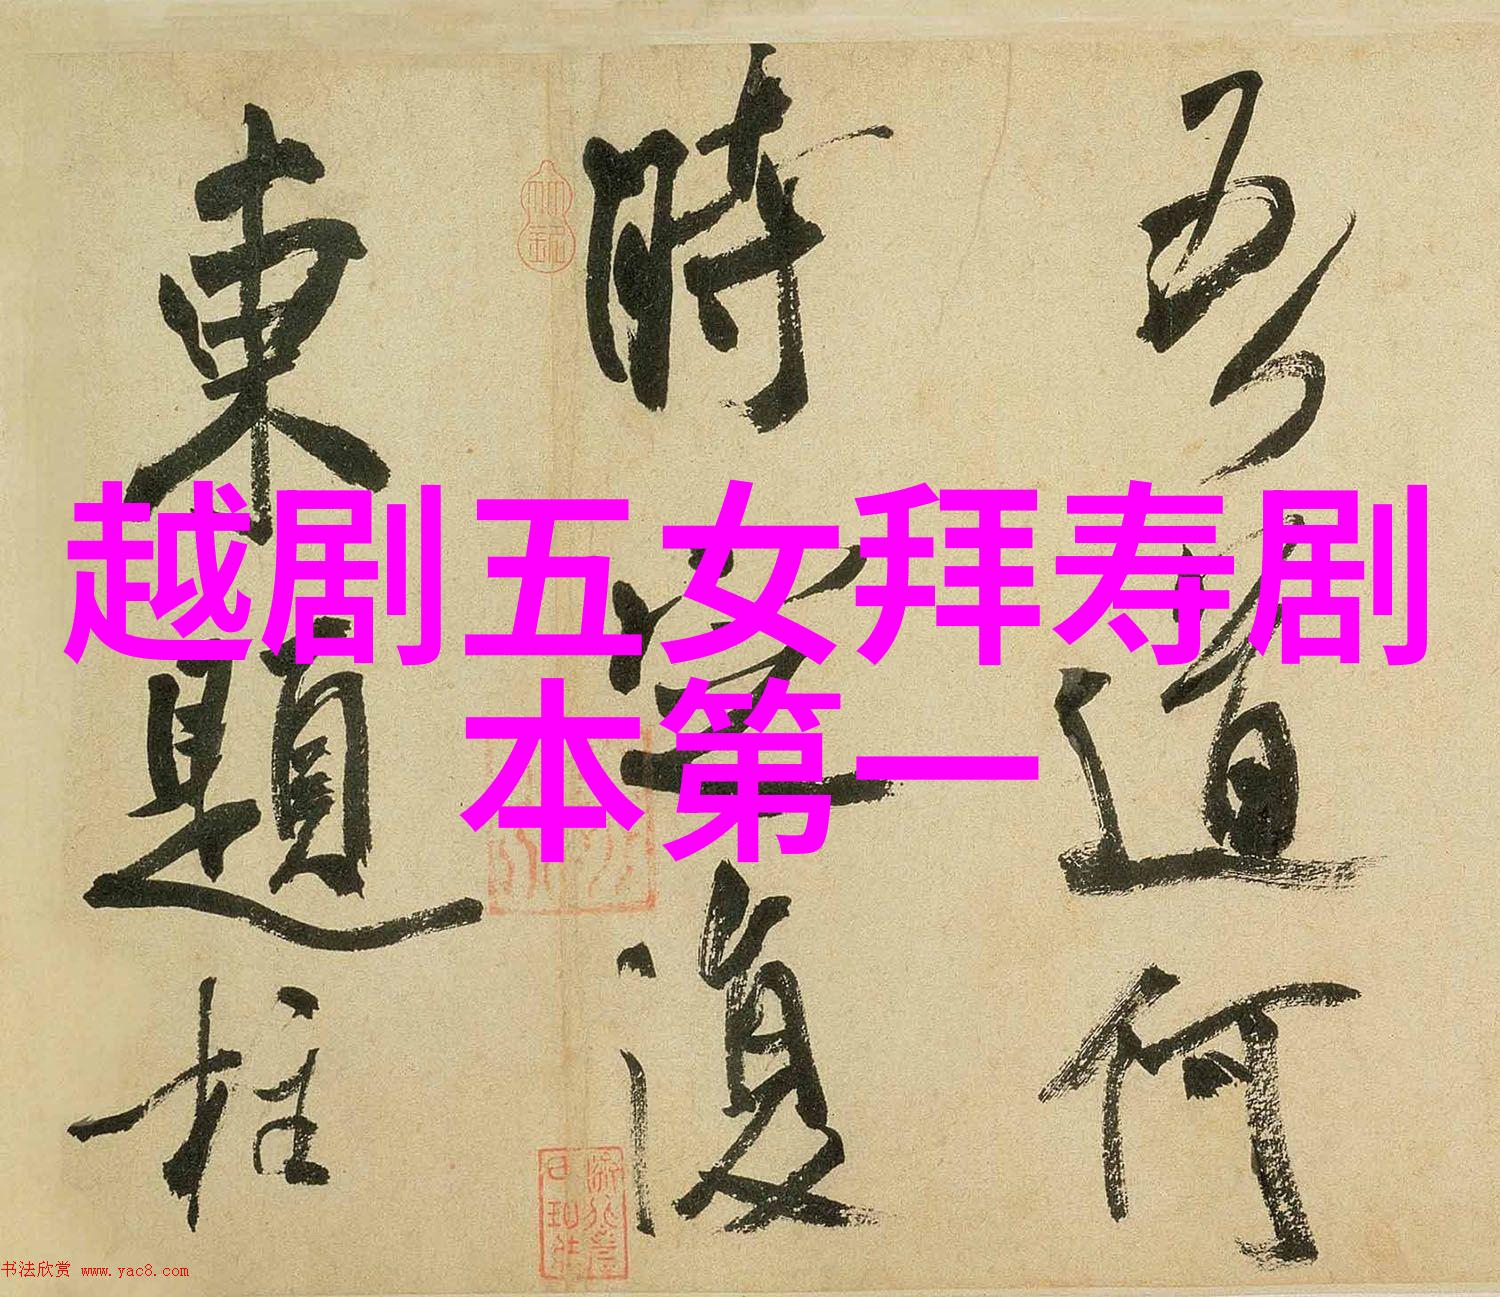 吾道何
時寧復
東題柱
越剧五女拜寿剧
本第一
书法欣赏 www.yac8.com